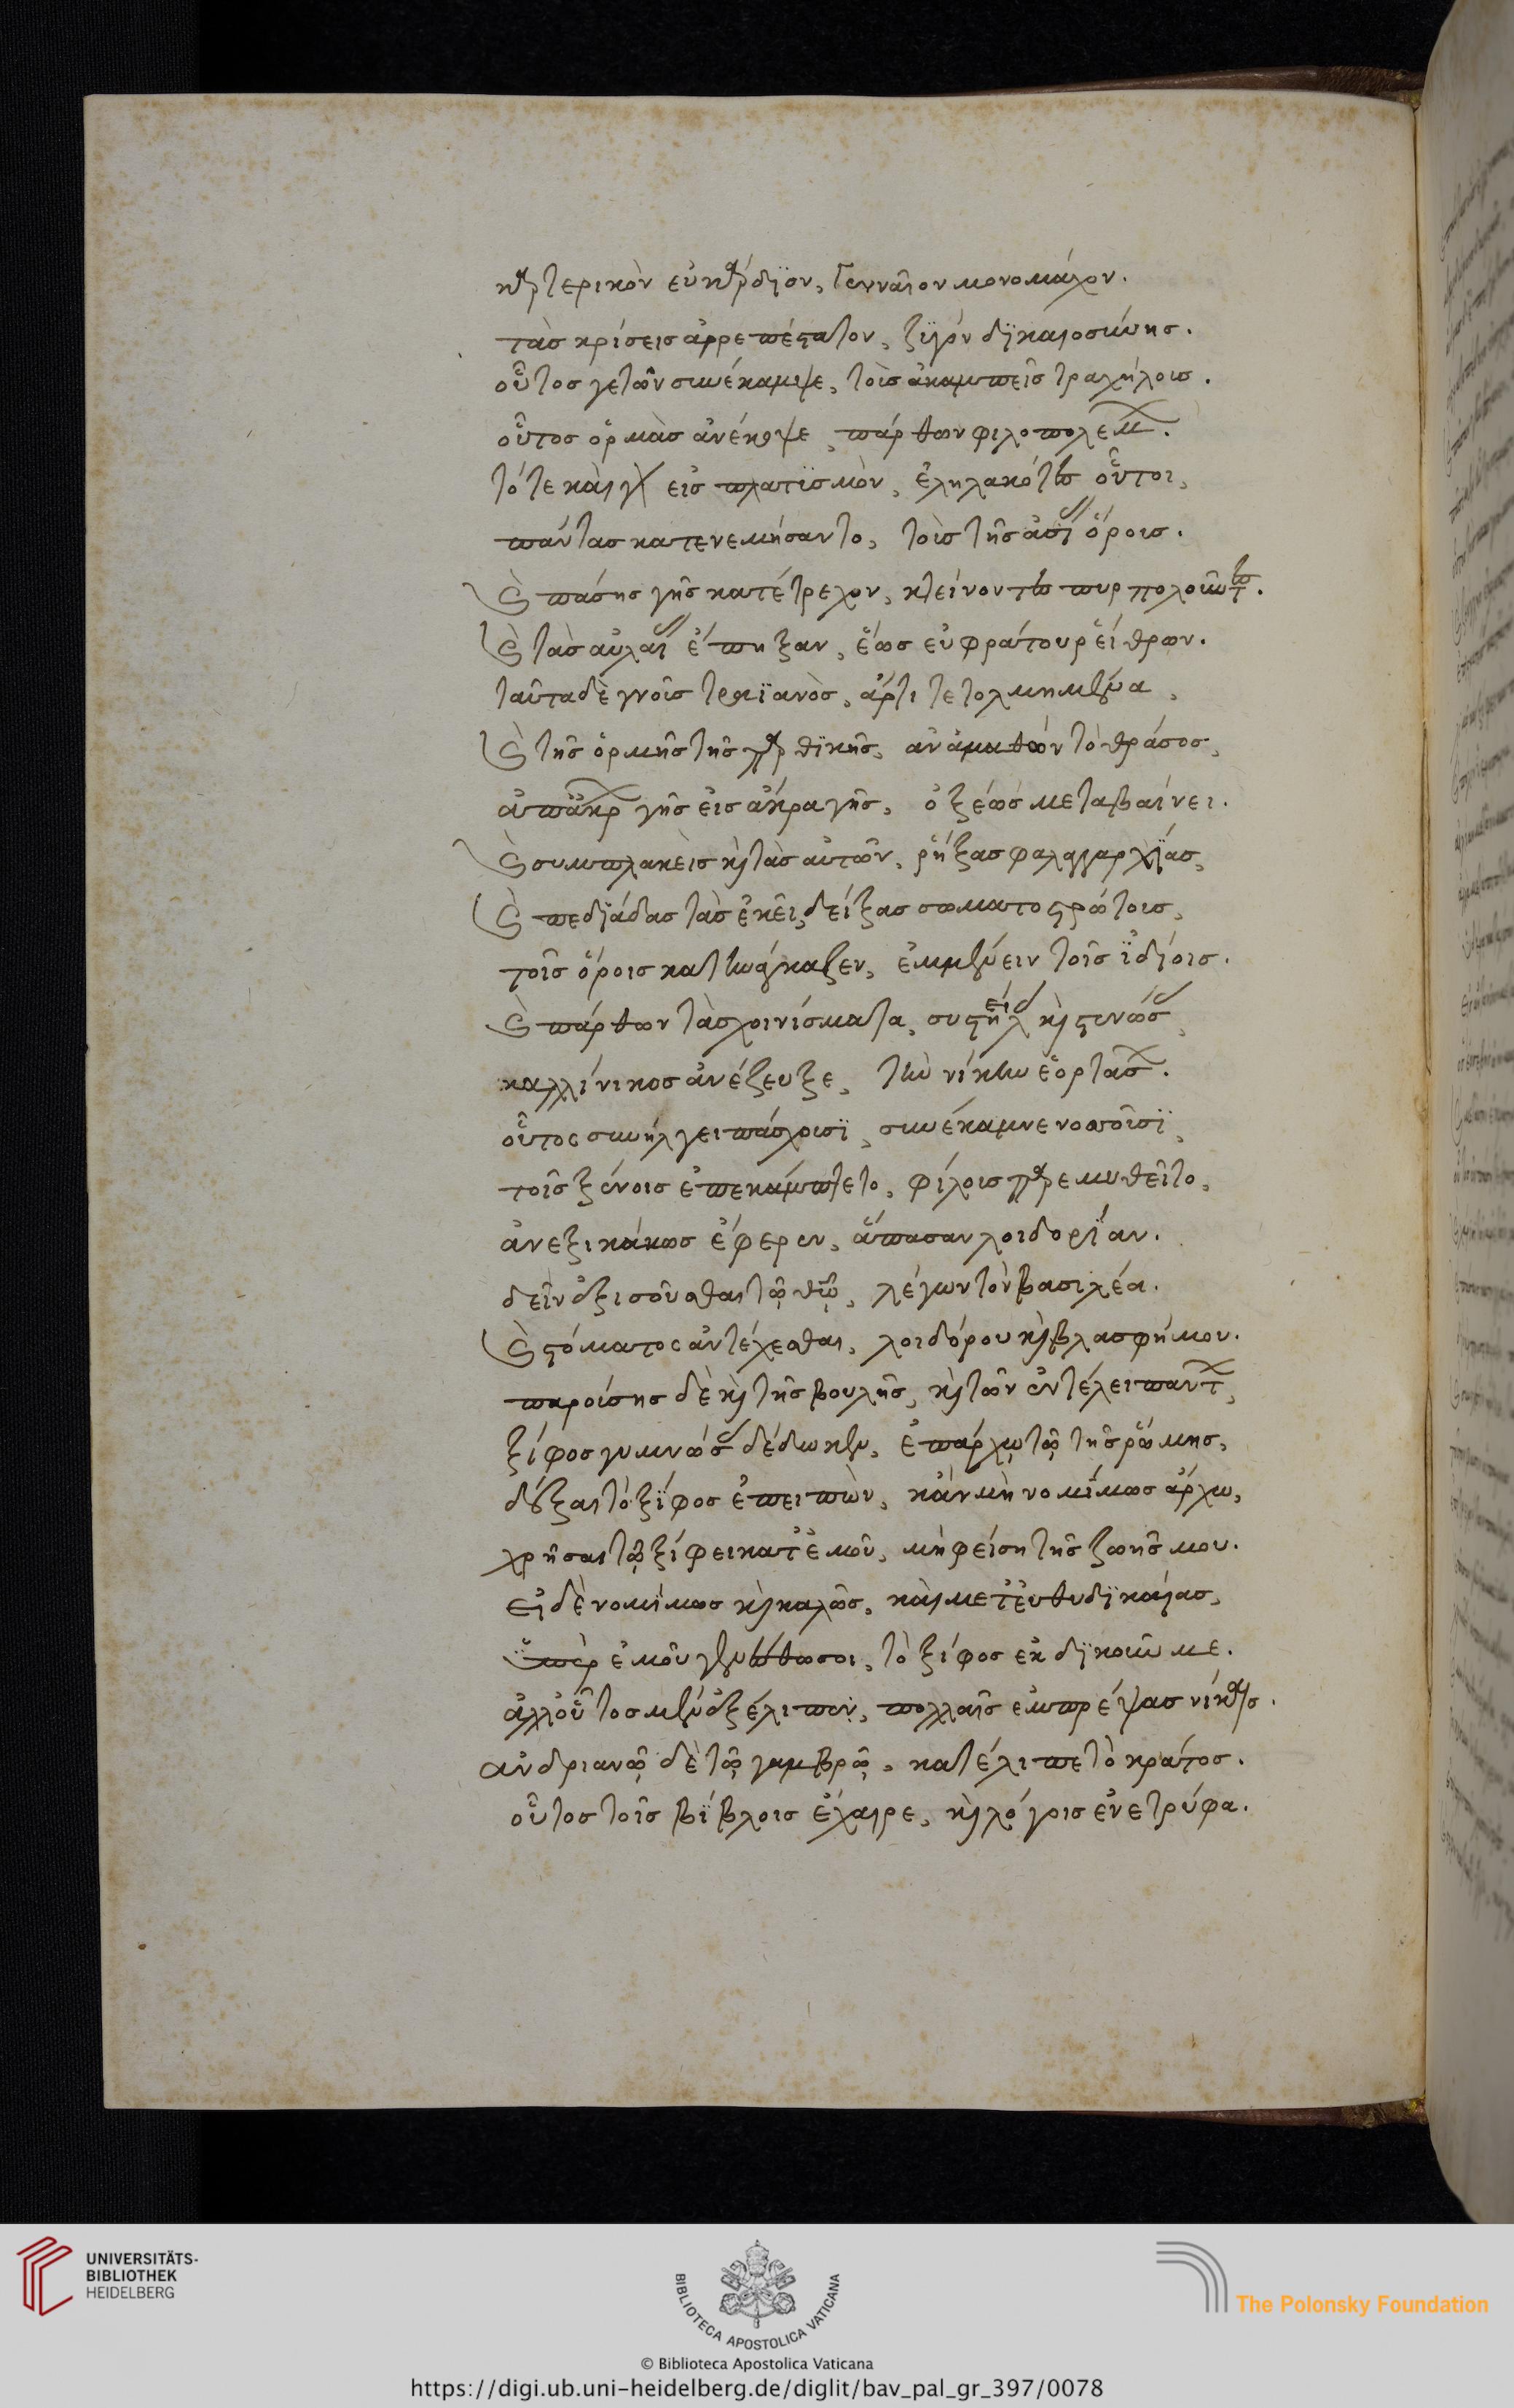 καρτερικὸν εὐκάρδϊον, Γενναῖον μονομάχον.
τὰσ κρίσεισ ἀρρεπέστατον, ζυγὸν δϊκαιοσύνησ.
οὗτοσ γετῶν συνέκαμψε, τοὺσ ἀκαμπεῖσ τραχήλουσ.
οὗτοσ ὁρμὰσ ἀνέκοψε, πάρθων φιλοπολέμων.
τότε καὶ γὰρ εἰσ πλατϋσμὸν, ἐληλακότεσ οὗτοι,
πάντασ κατενεμήσαντο, τοὺσ τῆσ ἀσίασ ὅρουσ.
καὶ πάσησ γῆσ κατέτρεχον, κτείνοντεσ πυρπολοῦντεσ.
καὶ τὰσ αὐλαίασ ἔπηξαν, ἕωσ εὐφράτου ῥείθρων.
ταῦτα δὲ γνοὺσ τραϊανὸσ, ἄρτι τετολμημένα,
καὶ τῆσ ὁρμῆσ τῆσ παρθϊκῆσ, ἀναμαθὼν τὸ θράσοσ,
ἀπάκρων γῆσ εἰσ ἄκρα γῆσ, ὀξέωσ μεταβαίνει.
καὶ συμπλακεὶσ καὶ τὰσ αὐτῶν, ῥήξασ φαλαγγαρχϊάσ,
καὶ πεδϊάδασ τὰσ ἐκεῖ, δείξασ σωματοστρώτουσ,
τοῖσ ὅροισ κατηνάγκαζεν, ἐμμένειν τοῖσ ϊδίοισ.
καὶ πάρθων τὰ σχοινίσματα, συστείλασ καὶ στενώσασ,
καλλίνικοσ ἀνέζευξε, τὴν νίκην ἑορτάσων.
οὗτος συνήλγει πάσχουσϊ, συνέκαμνε νοσοῦσϊ,
τοῖσ ξένοισ ἐπεκάμπτετο, φίλοισ παρεμυθεῖτο,
ἀνεξικάκωσ ἔφερεν, ἅπασαν λοιδορϊάν.
δεῖν ἐξισοῦσθαι τῷ θεῷ, λέγων τὸν βασιλέα.
καὶ στόματος ἀντέχεσθαι, λοιδόρου καὶ βλασφήμου.
παρούσησ δὲ καὶ τῆσ βουλῆσ, καὶ τῶν ἐν τέλει πάντων,
ξίφοσ γυμνώσασ δέδωκεν, ἐπάρχῳ τῷ τῆσ ῥώμησ,
δέξαι τὸ ξίφοσ ἐπειπὼν, κἂν μὴ νομίμωσ ἄρχω,
χρῆσαι τῷ ξίφει κατ' ἐμοῦ, μὴ φείσῃ τῆσ ζωῆσ μου.
εἰ δὲ νομίμωσ καὶ καλῶσ, καὶ μετ' εὐθυδϊκαίασ,
ὑπὲρ ἐμοῦ γενέσθω σοι, τὸ ξίφοσ ἐκδϊκοῦν με.
ἀλλ' οὗτοσ μὲν ἐξέλιπεν, πολλαῖσ ἐμπρέψασ νίκαισ.
ἀνδριανῷ δὲ τῷ γαμβρῷ, κατέλιπε τὸ κράτοσ.
οὗτοσ τοῖσ βϊβλοισ ἔχαιρε, καὶ λόγοισ ἐνετρύφα.
UNIVERSITÄTS-
BIBLIOTHEK
HEIDELBERG
BIBLIOTECA APOSTOLICA VATICANA
© Biblioteca Apostolica Vaticana
The Polonsky Foundation
https://digi.ub.uni-heidelberg.de/diglit/bav_pal_gr_397/0078